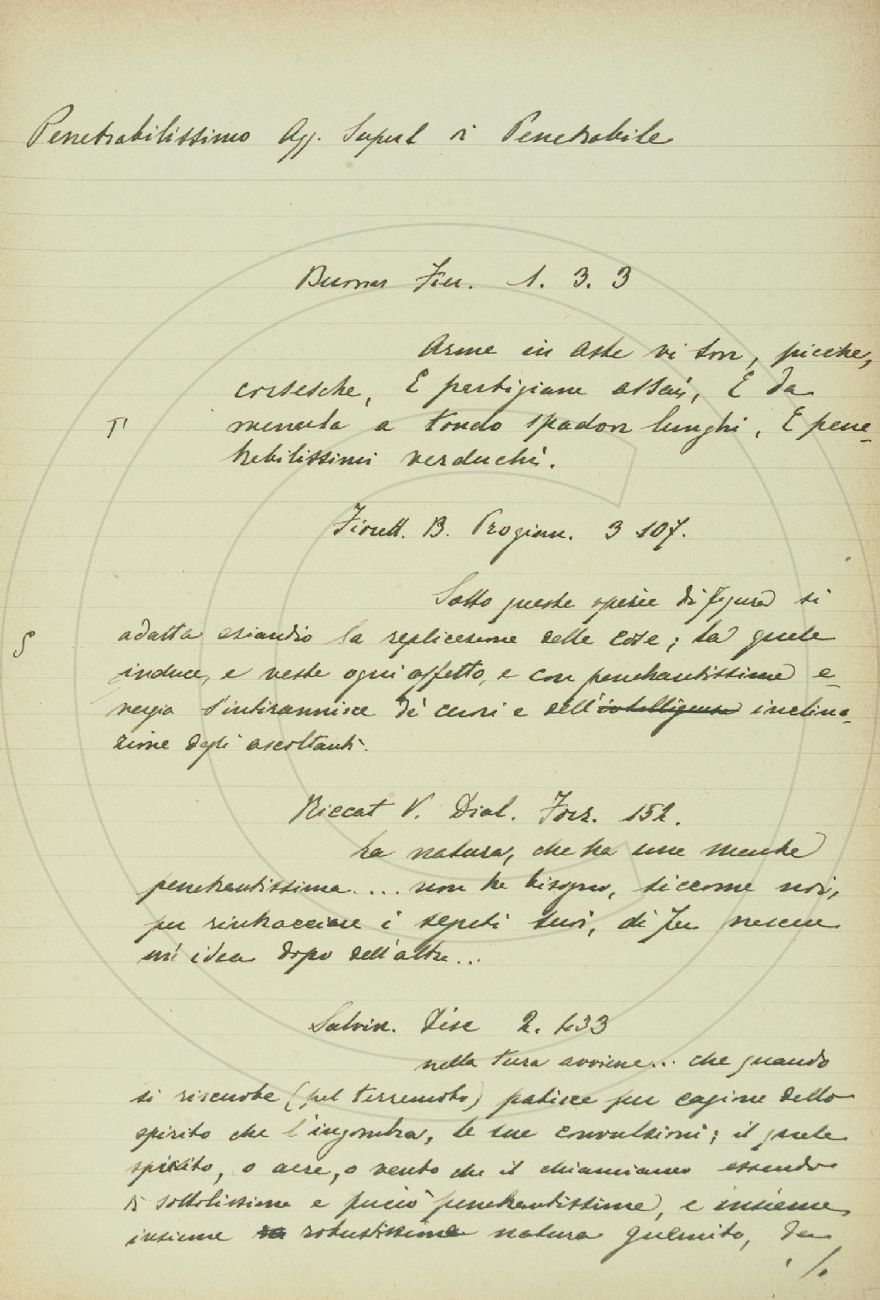 Penetrabilissimo Agg. Superl di Penetrabile
Buonar Fier. 1. 3. 3
Arme in aste vi son, picche,
corsesche, E partigiane assai, E da
menarla a tondo spadon lunghi, E pene-
trabilissimi verduchi.
Firett. B. Proginn. 3 107.
Sotto queste spezie di figura si
adatta eziandio la replicazione delle cose; la quale
induce, e veste ogni affetto, e con penetrantissima e-
nergia s'intirannisce de' cuori e dell'intelligenza inclina-
zione degli ascoltanti.
Riccat V. Dial. Forz. 152.
La natura, che ha una mente
penetrantissima.... non ha bisogno, siccome noi,
per rintracciare i segreti suoi, di far nascere
un' idea dopo dell'altra...
Salvin. Disc 2. 433
nella terra avviene... che quando
si riscuote (pel terremoto) patisce per cagione dello
spirito che l'ingombra, le sue convulsioni; il quale
spirito, o aere, o vento che il chiamiamo essendo
di sottilissima e perciò penetrantissima, e insieme
insieme robustissima natura guernito, da
./.